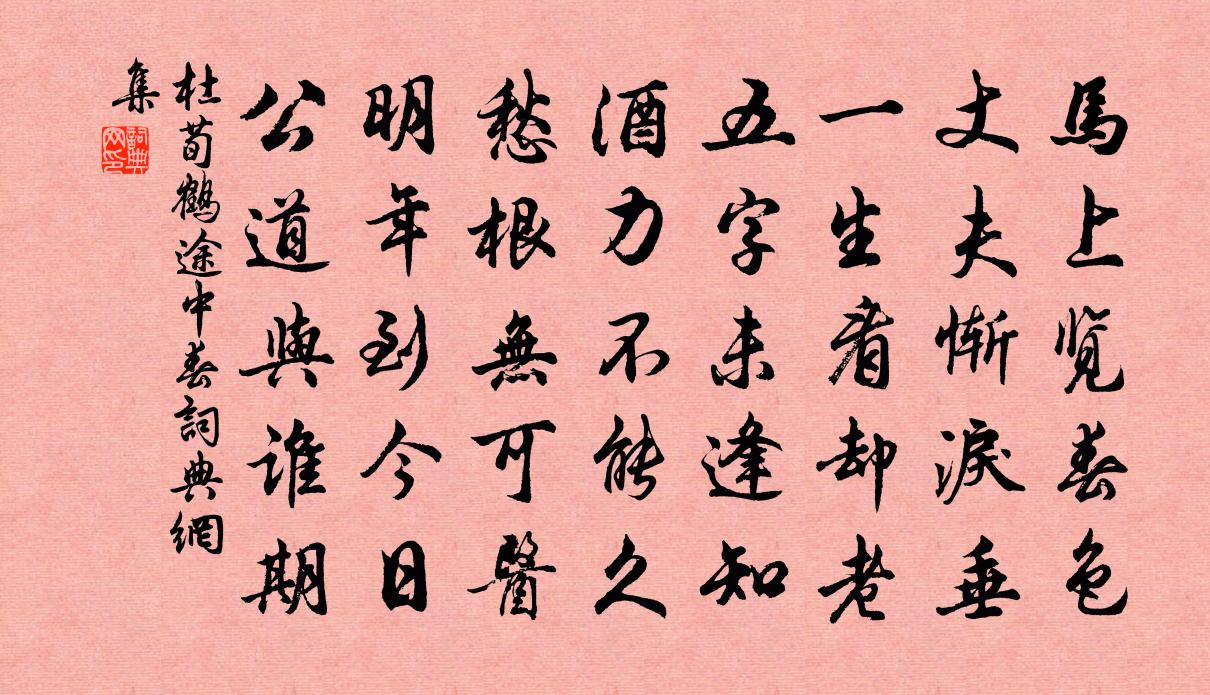 馬上覽春色
丈夫慚淚垂
一生看却老
五字未逢知
酒力不能久
愁根無可醫
明年到今日
公道與誰期
杜荀鶴途中春詞典網
集
詞典
网印